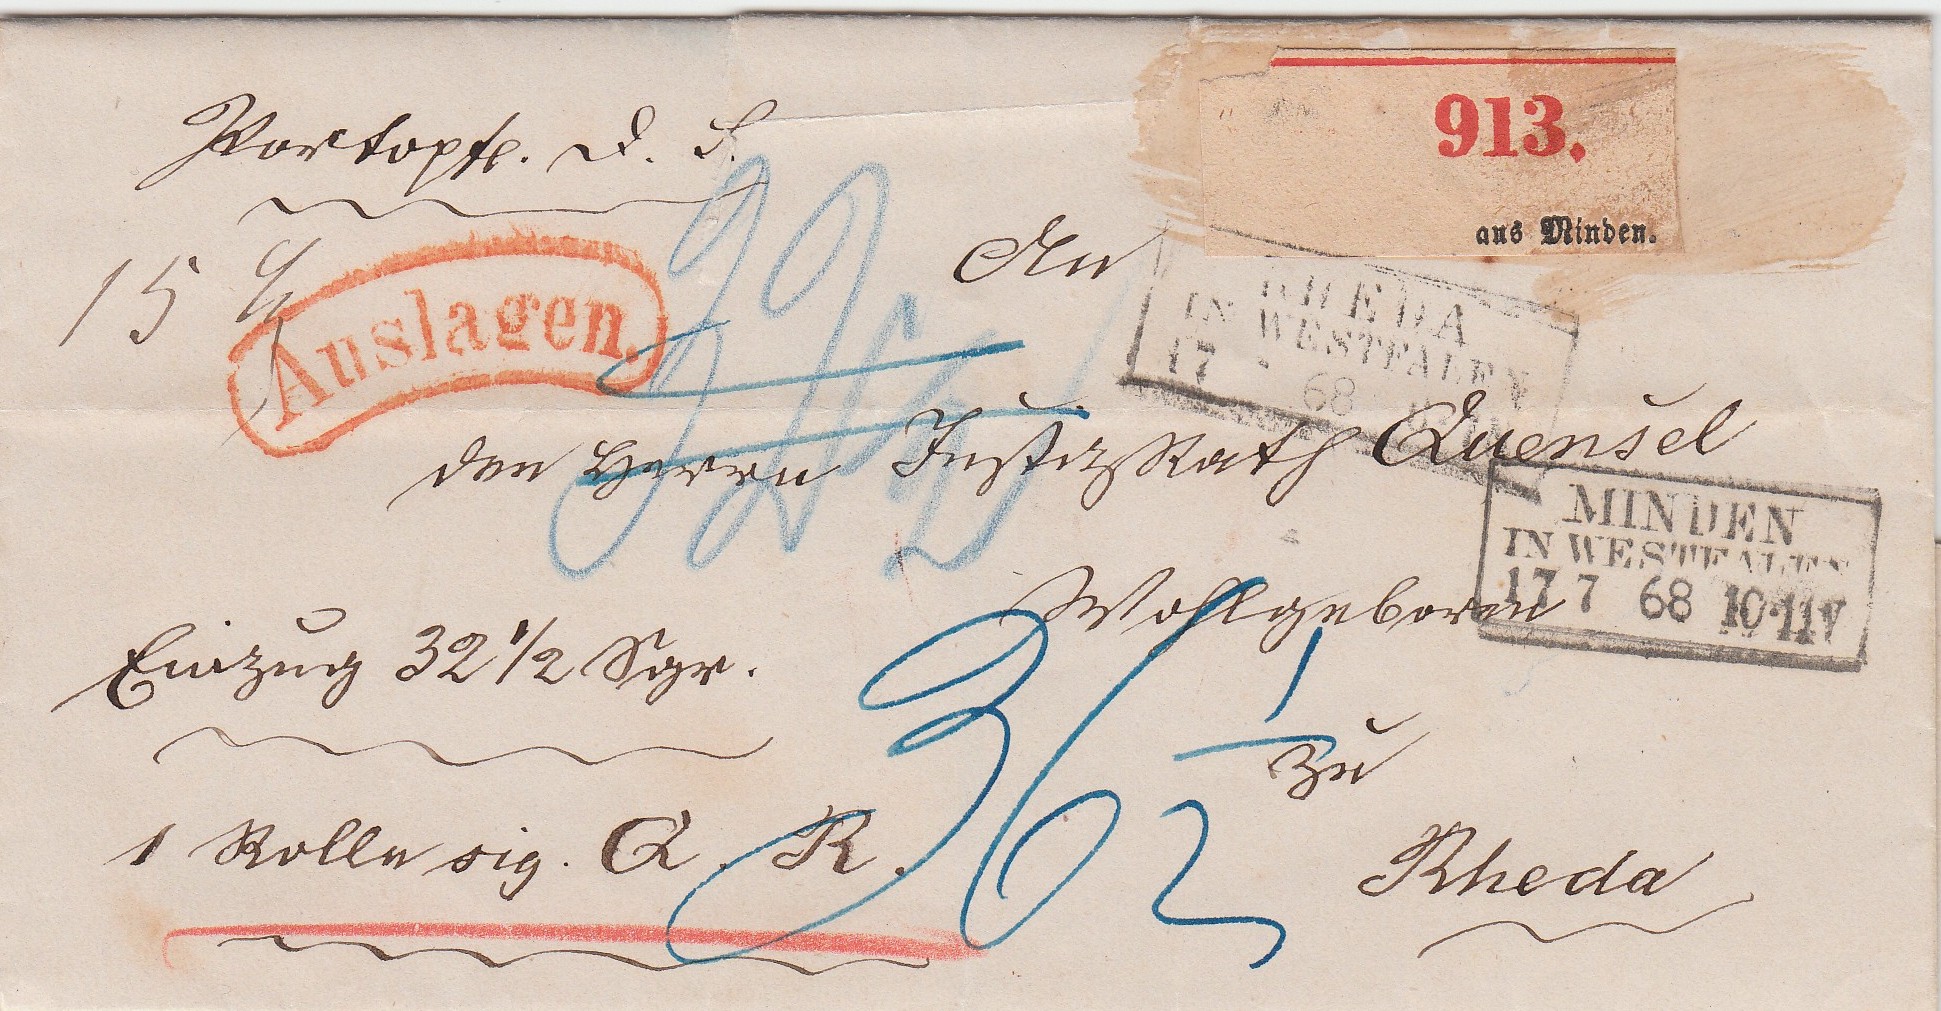 Portopfl. D. S.
15
Auslagen.
913.
aus Minden.
An
RHEDA
IN WESTFALEN
17 68
den Herrn JustizRath Quensel
MINDEN
IN WESTFALEN
17 7 68 10-11V
Wohlgeboren
Einzug 32 1/2 Sgr.
36 1/2
zu
1 Rolle sig. Q. R.
Rheda